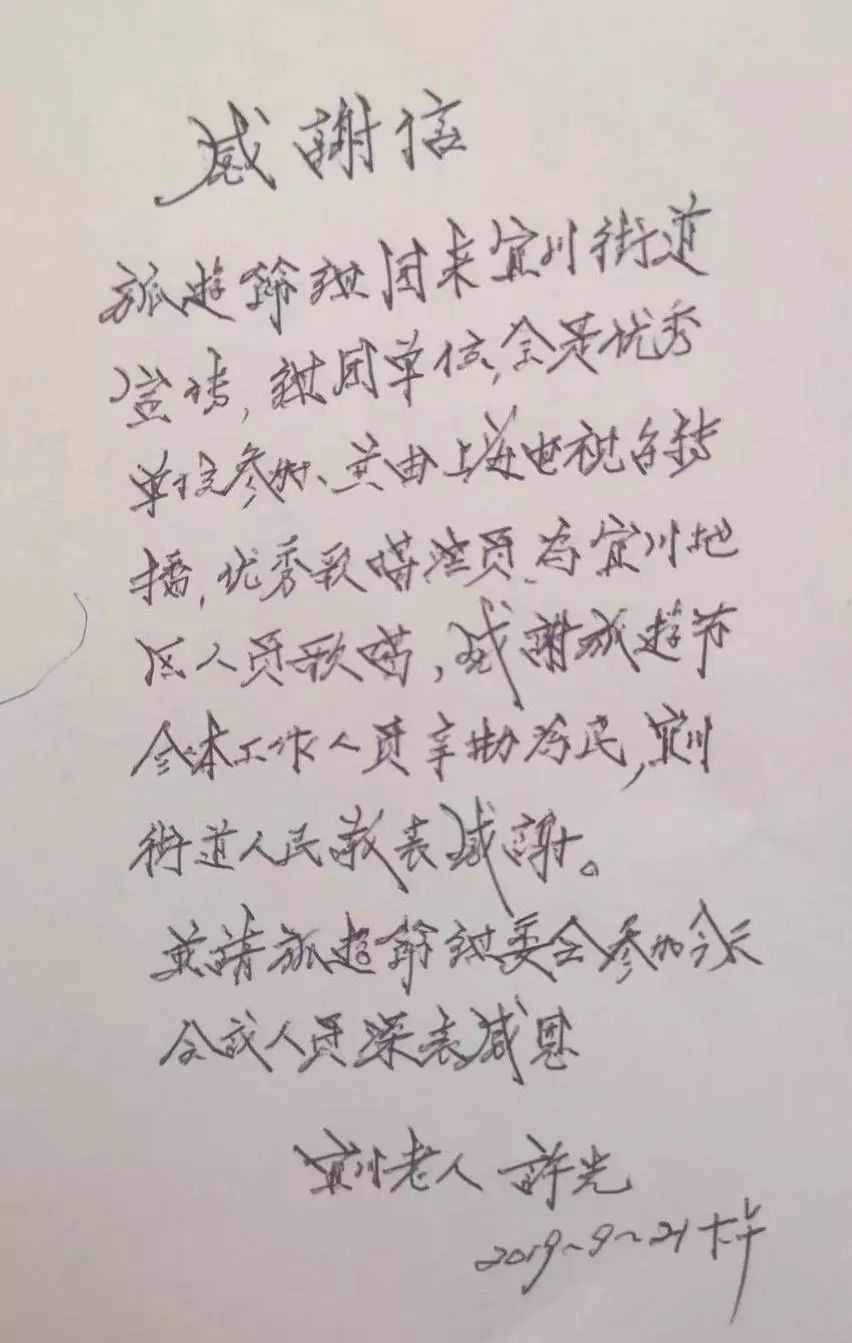 感謝信
旅遊節組团来宜川街道
宣传,組团单位,全是优秀
单位参加、并由上海电视台转
播,优秀歌唱演员、为宜川地
区人员歌唱,感謝旅遊节
全体工作人员辛勤为民,宜川
街道人民敬表感謝。
並請旅遊節組委会参加今天
全成人员深表感恩
宜川老人 許光
2019~9~21